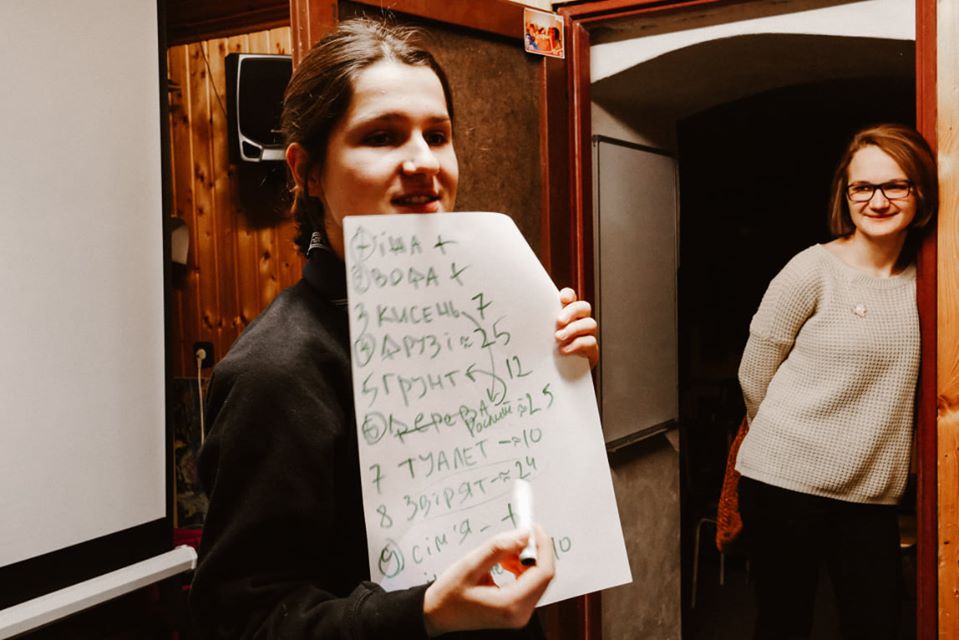 ① їжа +
② вода +
3 кисень 7
④ друзі ≈ 25
5 ґрунт 12
⑥ дерева Рослин ≈ 25
7 туалет - ≈10
8 звірят - ≈ 24
⑨ сім'я - +
10